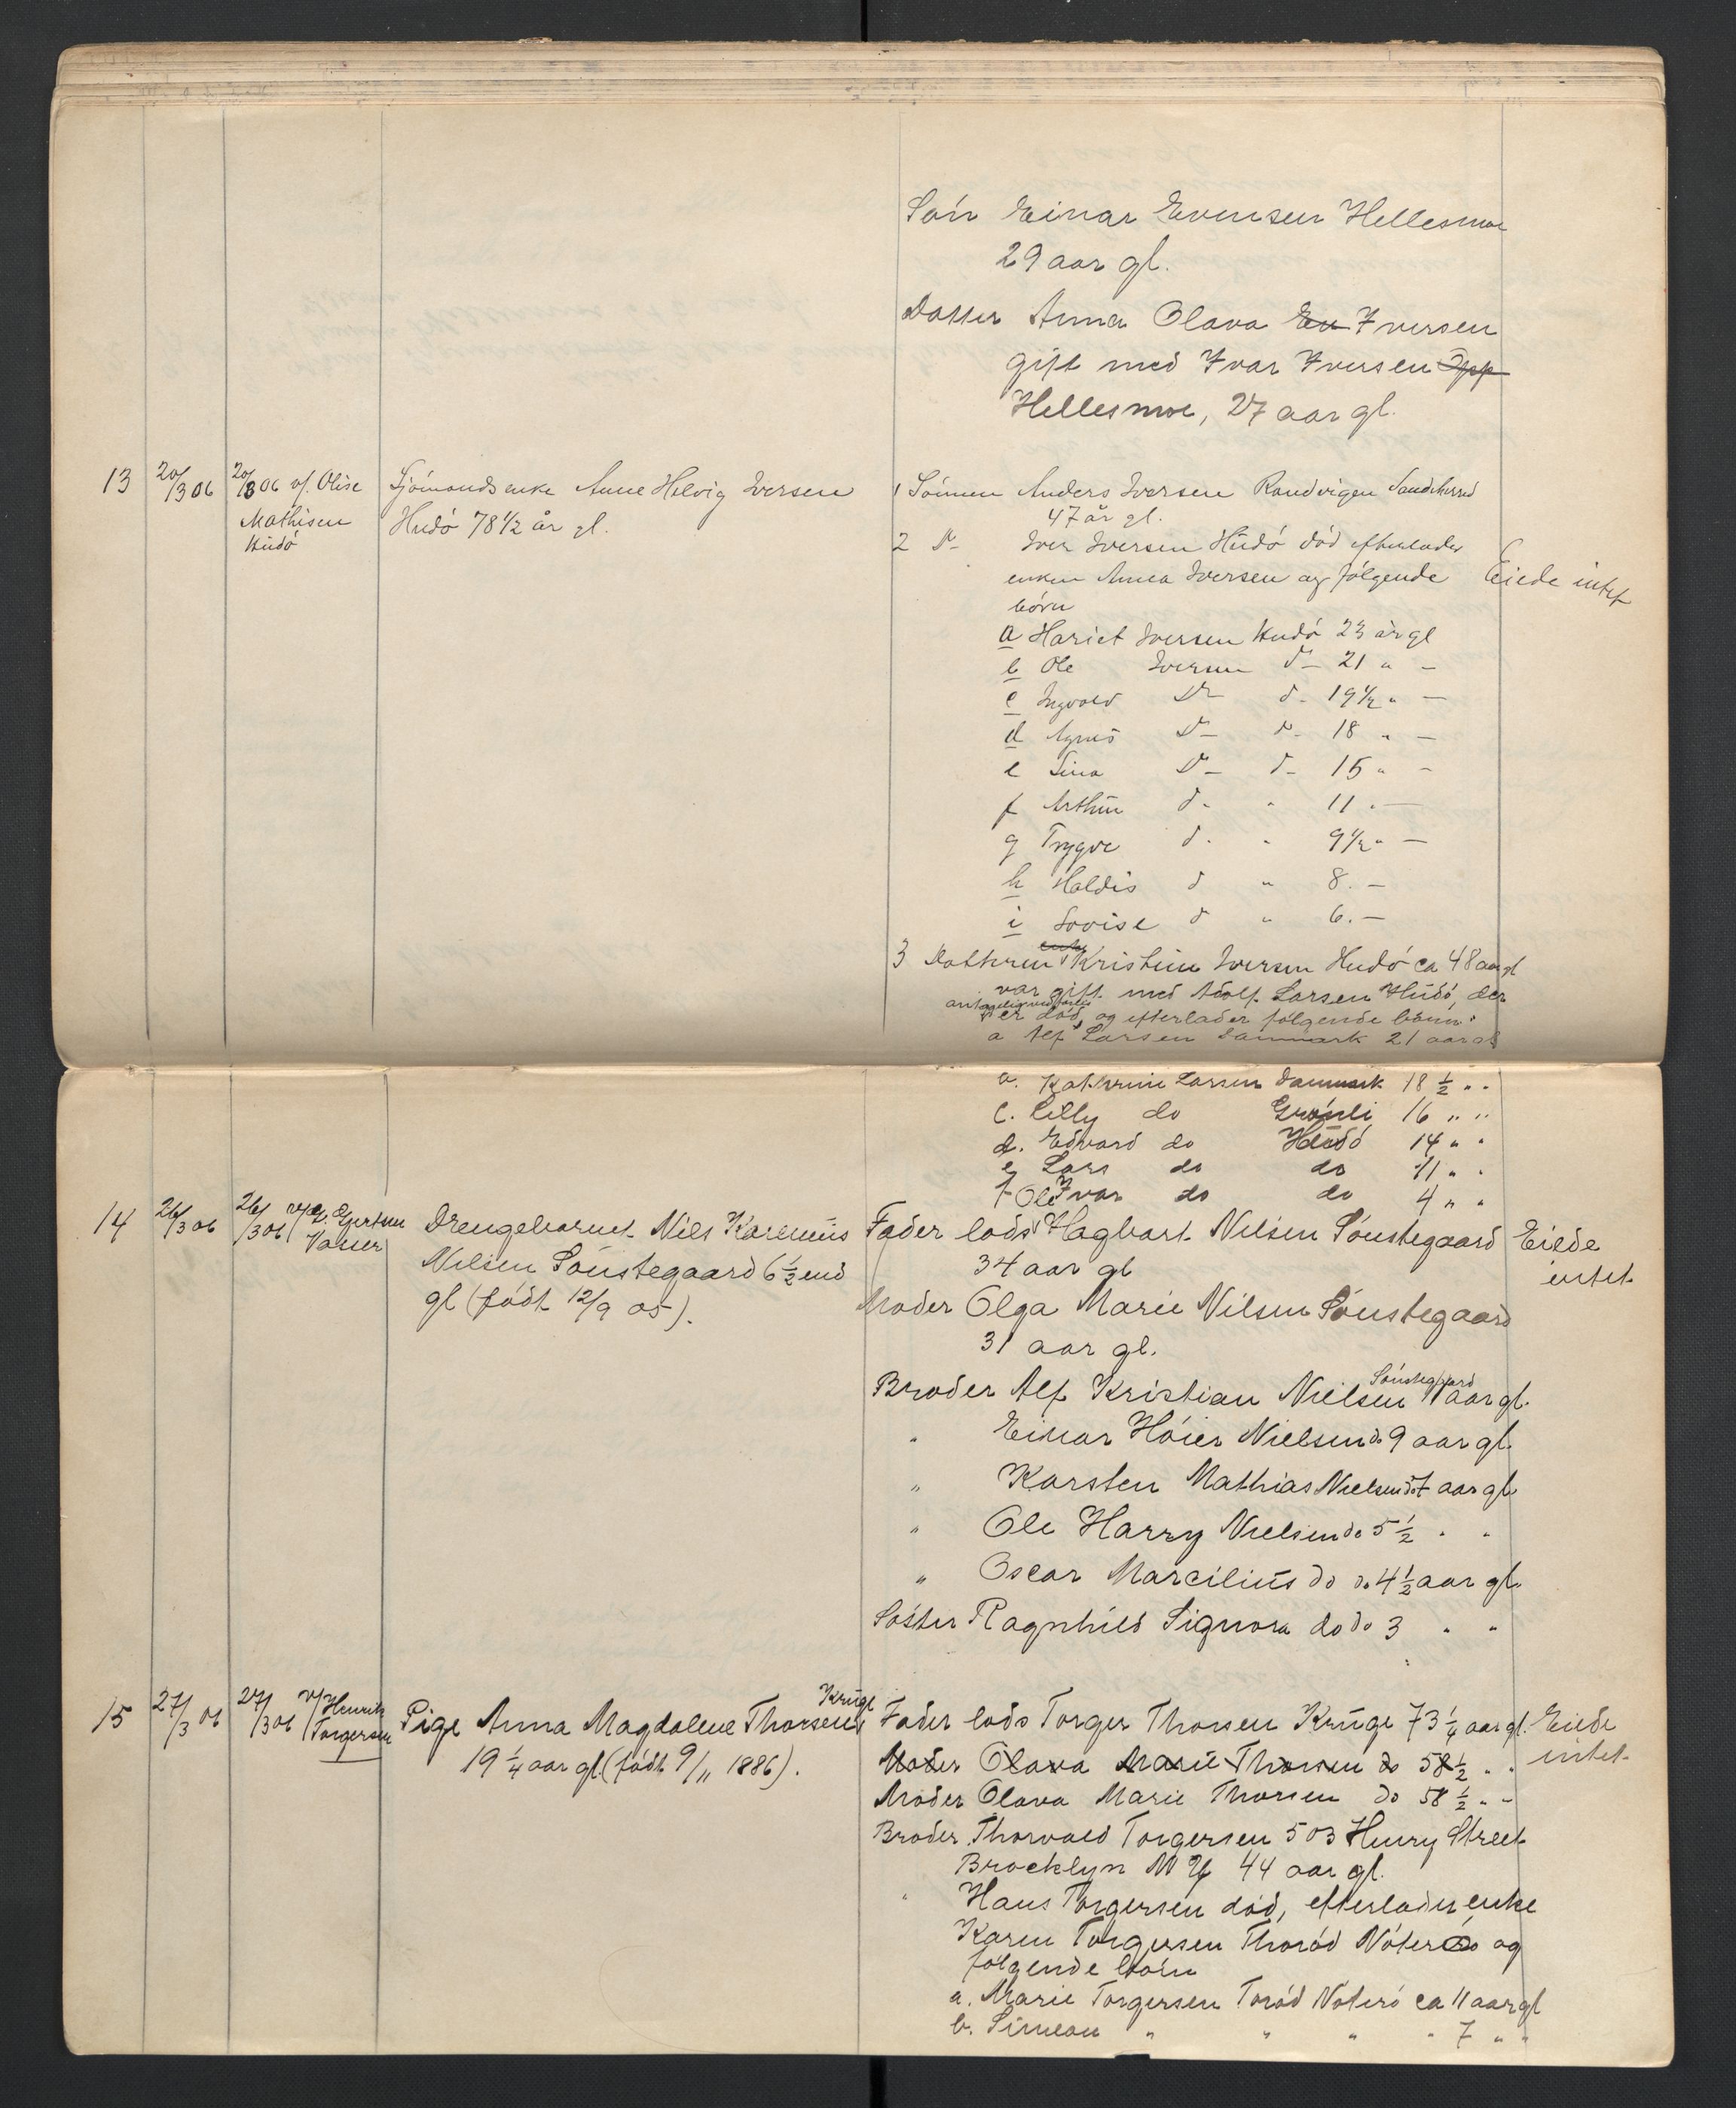 Søn Einar Evensen Hellesmoe
29 aar gl.
Datter Anna Olava Ev Iversen
gift med Ivar Iversen Opp
Hellesmoe, 27 aar gl.
13 20/3 06 20/3 06 v/ Olise Mathisen Hudø
Sjømands enke Anne Helvig Iversen
Hudø 78 1/2 år gl.
1 Sønnen Anders Iversen Randvigen Sandeherred
47 år gl.
2 D- Iver Iversen Hudø død efterlader
enken Anna Iversen og følgende
børn
Eiede intet
a Hariet Iversen Hudø 23 år gl
b Ole Iversen d- 21 " -
c Ingvald D- d- 19 1/2 " -
d Agnes D- d- 18 " -
e Lina D- d- 15 " -
f Arthur d- " 11 " -
g Trygve d- " 9 1/2 " -
h Haldis d " 8 . -
i Lovise d " 6 . -
3 Datteren enke Kristine Iversen Hudø ca 48 aar gl
var gift med Adolf Larsen Hudø, der
er død, og efterlader følgende børn:
a Alf Larsen Danmark 21 aar gl
b. Kathrine Larsen Danmark 18 1/2 " "
c. Lilly do Grønli 16 " "
d. Edvard do Hudø 14 " "
e Lars do do 11 " "
f Ole Ivar do do 4 " "
14 26/3 06 26/3 06 v/ Gjertsen
Drengebarnet Nils Karenius
Nilsen Sønstegaard 6 1/2 md
gl (født 12/9 05).
Fader lods Hagbart Nilsen Sønstegaard
34 aar gl
Eiede
intet
Moder Olga Marie Nilsen Sønstegaard
31 aar gl.
Broder Alf Kristian Nielsen Sønstegaard 11 aar gl.
" Einar Høier Nielsen do 9 aar gl.
" Karsten Mathias Nielsen do 7 aar gl.
" Ole Harry Nielsen do 5 1/2 " "
" Oscar Marcilius do do 4 1/2 aar gl.
Søster Ragnhild Signora do do 3 " "
15 27/3 06 27/3 06 v/ Henrik Torgersen
Pige Anna Magdalene Thorsen Kruge
19 1/4 aar gl. (født 9/11 1886).
Fader lods Torger Thorsen Kruge 73 1/4 aar gl.
Eiede
intet
Moder Olava Marie Thorsen do 58 1/2 " "
Moder Olava Marie Thorsen do 58 1/2 " "
Broder Thorvald Torgersen 503 Henry Street
Brocklyn N Y 44 aar gl.
" Hans Torgersen død, efterlader enke
Karen Torgersen Thorød Nøterø og
følgende børn
a. Marie Torgersen Torød Nøterø ca 11 aar gl
b. Simeon " " " " 7 " "